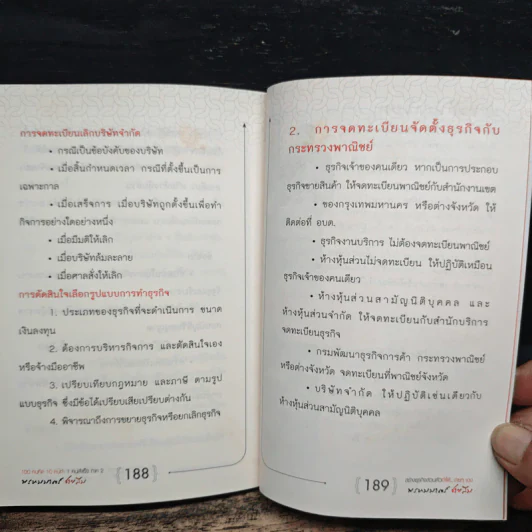 การจดทะเบียนเลิกบริษัทจำกัด
• กรณีเป็นข้อบังคับของบริษัท
• เมื่อสิ้นกำหนดเวลา กรณีที่ตั้งขึ้นเป็นการ
เฉพาะกาล
• เมื่อเสร็จการ เมื่อบริษัทถูกตั้งขึ้นเพื่อทำ
กิจการอย่างใดอย่างหนึ่ง
• เมื่อมีมติให้เลิก
• เมื่อบริษัทล้มละลาย
• เมื่อศาลสั่งให้เลิก
การตัดสินใจเลือกรูปแบบการทำธุรกิจ
1. ประเภทของธุรกิจที่จะดำเนินการ ขนาด
เงินลงทุน
2. ต้องการบริหารกิจการ และตัดสินใจเอง
หรือจ้างมืออาชีพ
3. เปรียบเทียบกฎหมาย และภาษี ตามรูป
แบบธุรกิจ ซึ่งมีข้อได้เปรียบเสียเปรียบต่างกัน
4. พิจารณาถึงการขยายธุรกิจหรือยกเลิกธุรกิจ
188
2. การจดทะเบียนจัดตั้งธุรกิจกับ
กระทรวงพาณิชย์
• ธุรกิจเจ้าของคนเดียว หากเป็นการประกอบ
ธุรกิจขายสินค้า ให้จดทะเบียนพาณิชย์กับสำนักงานเขต
• ของกรุงเทพมหานคร หรือต่างจังหวัด ให้
ติดต่อที่ อบต.
• ธุรกิจงานบริการ ไม่ต้องจดทะเบียนพาณิชย์
• ห้างหุ้นส่วนไม่จดทะเบียน ให้ปฏิบัติเหมือน
ธุรกิจเจ้าของคนเดียว
• ห้างหุ้นส่วนสามัญนิติบุคคล และ
ห้างหุ้นส่วนจำกัด ให้จดทะเบียนกับสำนักบริการ
จดทะเบียนธุรกิจ
• กรมพัฒนาธุรกิจการค้า กระทรวงพาณิชย์
หรือต่างจังหวัด จดทะเบียนที่พาณิชย์จังหวัด
• บริษัทจำกัด ให้ปฏิบัติเช่นเดียวกับ
ห้างหุ้นส่วนสามัญนิติบุคคล
189